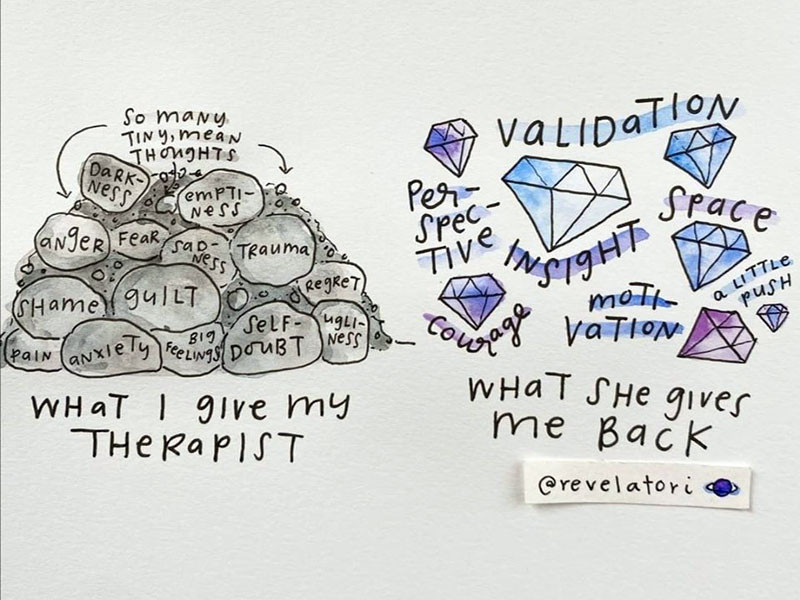 SO MANY
TINY, MEAN
THOUGHTS
DARK-
NESS
EMPTI-
NESS
ANGER
FEAR
SAD-
NESS
TRAUMA
REGRET
SHAME
GUILT
PAIN
ANXIETY
BIG
FEELINGS
SELF-
DOUBT
UGLI-
NESS
WHAT I GIVE MY
THERAPIST
VALIDATION
PER-
SPEC-
TIVE
INSIGHT
SPACE
COURAGE
MOTI-
VATION
A LITTLE
PUSH
WHAT SHE GIVES
ME BACK
@revelatori